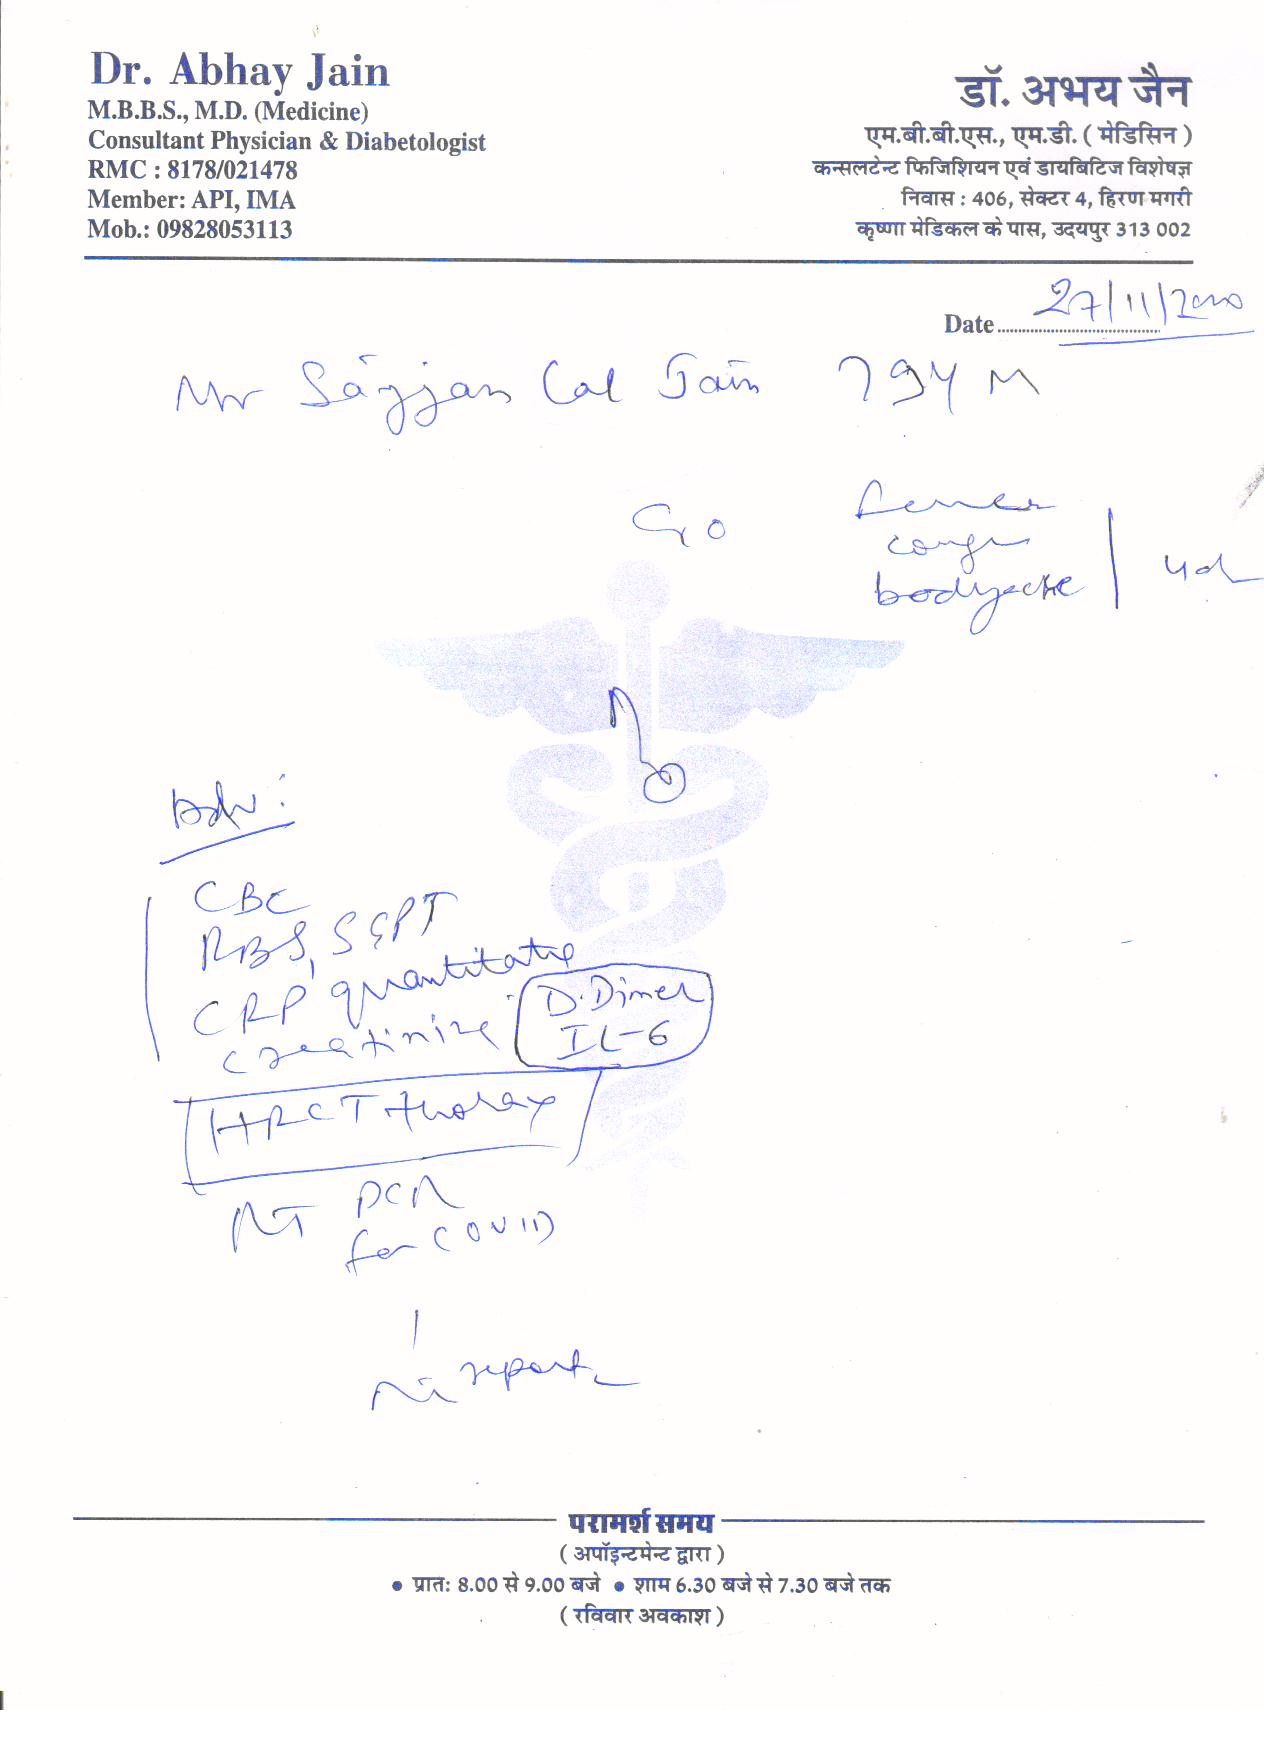 Dr. Abhay Jain
M.B.B.S., M.D. (Medicine)
Consultant Physician & Diabetologist
RMC : 8178/021478
Member: API, IMA
Mob.: 09828053113
डॉ. अभय जैन
एम.बी.बी.एस., एम.डी. ( मेडिसिन )
कन्सलटेन्ट फिजिशियन एवं डायबिटिज विशेषज्ञ
निवास : 406, सेक्टर 4, हिरण मगरी
कृष्णा मेडिकल के पास, उदयपुर 313 002
Date 27/11/2020
Mr Sajjan Lal Jain 79Y M
C/o Fever
cough
bodyache 4d
Adv :
CBC
RBS, SGPT
CRP quantitative
creatinine D.Dimer
IL-6
HRCT thorax
RT PCR
for COVID
report
परामर्श समय
( अपॉइन्टमेन्ट द्वारा )
• प्रात: 8.00 से 9.00 बजे • शाम 6.30 बजे से 7.30 बजे तक
( रविवार अवकाश )